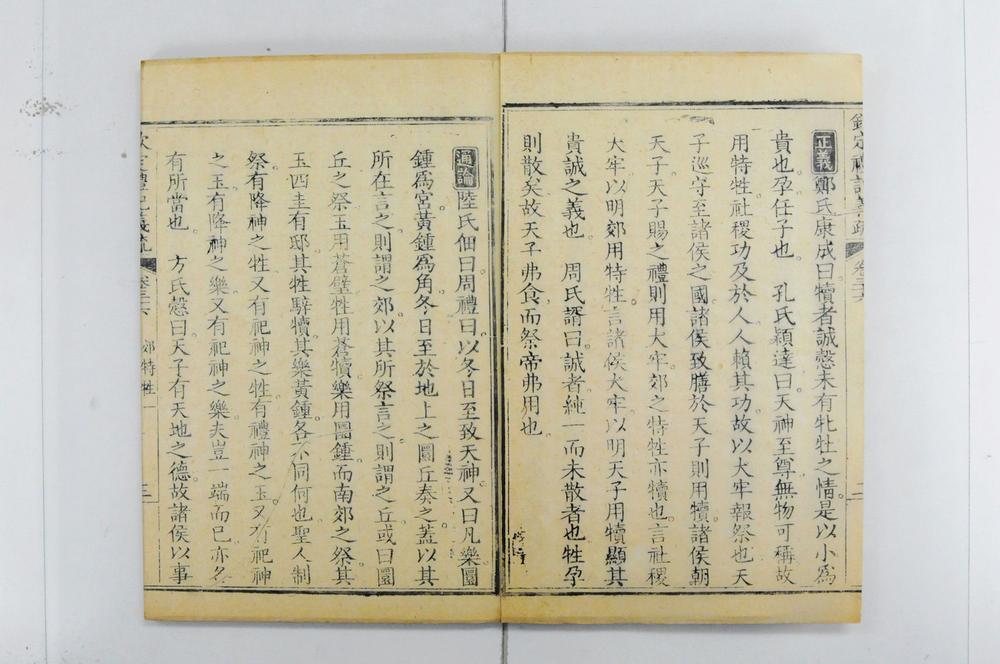 欽定禮記義疏 卷三十六 二
正義 鄭氏康成曰犢者誠慤未有牝牡之情是以小爲
貴也孕任子也 孔氏穎達曰天神至尊無物可稱故
用特牲社稷功及於人人賴其功故以大牢報祭也天
子巡守至諸侯之國諸侯致膳於天子則用犢諸侯朝
天子天子賜之禮則用大牢郊之特牲亦犢也言社稷
大牢以明郊用特牲言諸侯大牢以明天子用犢顯其
貴誠之義也 周氏諝曰誠者純一而未散者也牲孕
則散矣故天子弗食而祭帝弗用也
通論 陸氏佃曰周禮曰以冬日至致天神又曰凡樂圜
鍾爲宮黃鍾爲角冬日至於地上之圜丘奏之蓋以其
所在言之則謂之郊以其所祭言之則謂之丘或曰圜
丘之祭玉用蒼璧牲用蒼犢樂用圜鍾而南郊之祭其
玉四圭有邸其牲騂犢其樂黃鍾各不同何也聖人制
祭有降神之牲又有祀神之牲有禮神之玉又有祀神
之玉有降神之樂又有祀神之樂夫豈一端而已亦各
有所當也 方氏慤曰天子有天地之德故諸侯以事
欽定禮記義疏 卷三十六 郊特牲 三